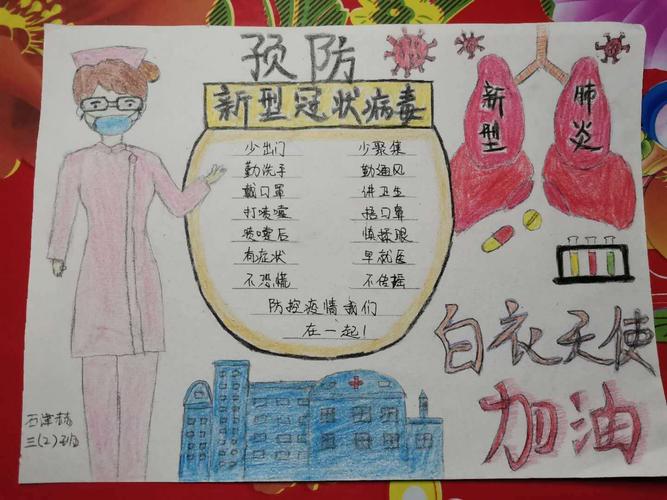 预防
新型冠状病毒
少出门 少聚集
勤洗手 勤通风
戴口罩 讲卫生
打喷嚏 捂口鼻
喷嚏后 慎揉眼
有症状 早就医
不恐慌 不传摇
防控疫情我们
在一起!
新型
肺炎
白衣天使
加油
三(2)班